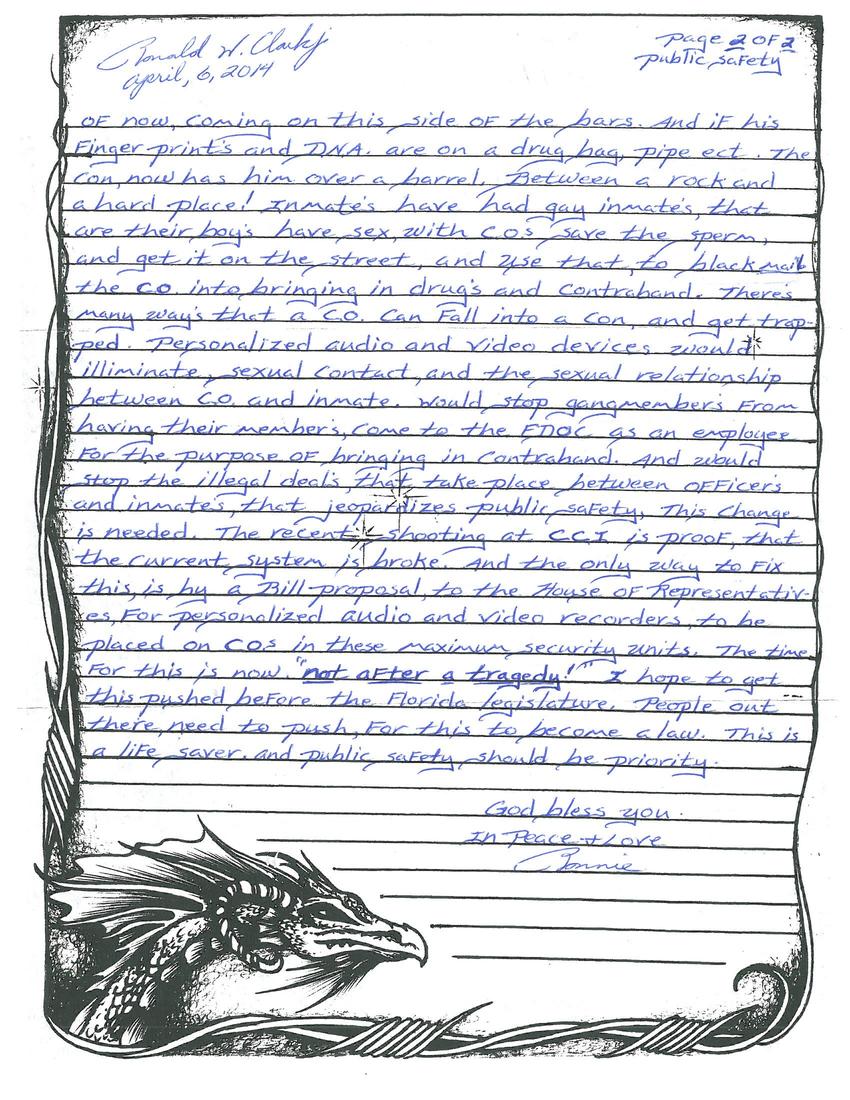 Ronald W. Clark jr
april, 6, 2014
page 2 OF 2
public safety
OF now, coming on this side OF the bars. And iF his
Finger print's and D.N.A. are on a drug bag, pipe ect. The
con, now has him over a barrel. Between a rock and
a hard place! Inmate's have had gay inmate's, that
are their boy's have sex, with C.O.s save the sperm,
and get it on the street, and use that, to black mail
the C.O. into bringing in drug's and contraband. There's
many way's that a C.O. can Fall into a con, and get trap-
ped. Personalized audio and video devices would
illiminate, sexual contact, and the sexual relationship
between C.O. and inmate. Would stop gangmember's From
having their member's, come to the FDOC as an employee
For the purpose OF bringing in contraband. And would
stop the illegal deal's, that take place between OFFicer's
and inmate's, that jeopardizes public saFety, This change
is needed. The recent shooting at C.C.I. is prooF, that
the current system is broke. And the only way to Fix
this, is by a Bill proposal, to the House OF Representativ-
es, For personalized audio and video recorders, to be
placed on C.O.s in these maximum security units. The time
For this is now. "not aFter a tragedy!" I hope to get
this pushed beFore the Florida legislature. People out
there, need to push, For this to become a law. This is
a liFe saver. and public saFety, should be priority.
God bless you.
In Peace + Love
Ronnie